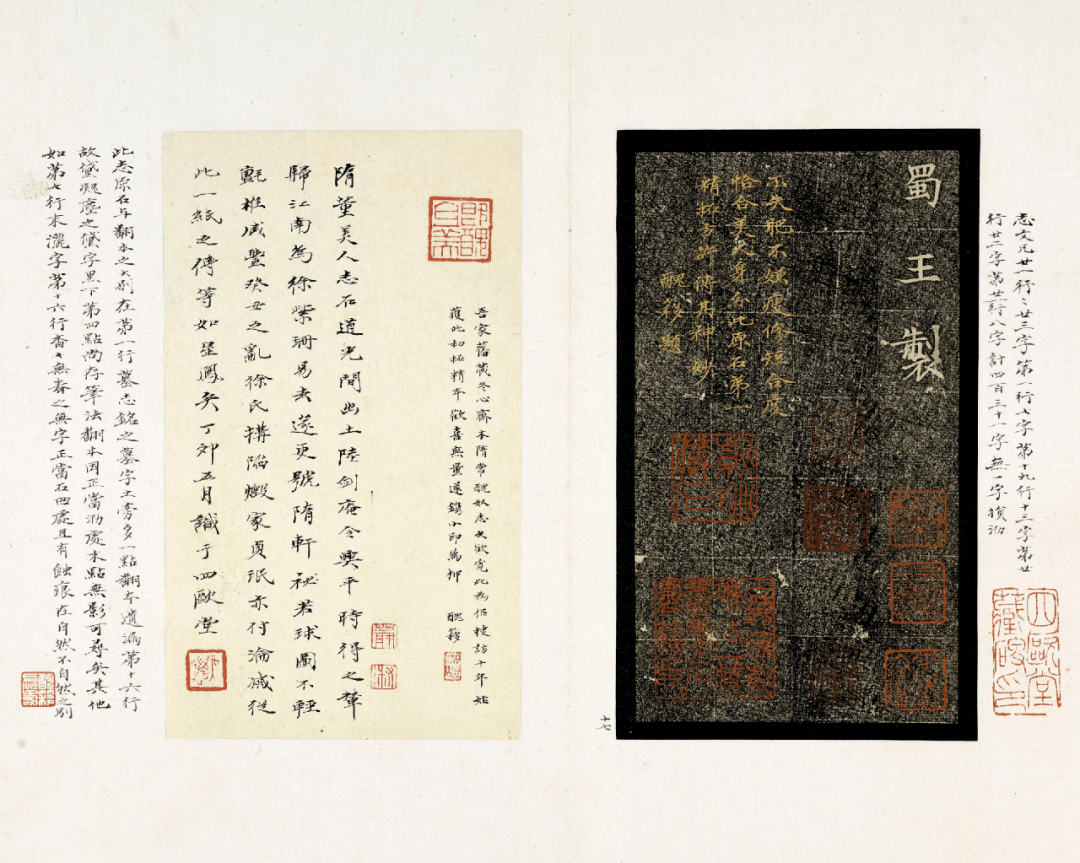 志文凡廿一行行廿三字第一行七字第十九行十三字第廿
行廿二字第廿一行八字計四百三十一字無一字損泐
四歐堂藏改印
蜀王製
不失肥不嫌瘦修短合度
恰合美人身分此原石弟一
精拓方許傳其神妙
醜簃題
十七
吾家舊藏冬心齋本隋常醜奴志久欲覓此為侶棲訪十年始
獲此初拓精本歡喜無量遂鐫小印為押 醜簃
隋董美人志石道光間出土陸劍庵令興平時得之輦
歸江南為徐紫珊易去遂更號隋軒祕若球圖不輕
氈椎咸豐癸丑之亂徐氏搆陷燬家貞珉亦付淪滅從
此一紙之傳等如星鳳矣丁卯五月識于四歐堂
此志原石与翻本之大別在第一行墓志銘之墓字土旁多一點翻本遺漏第十六行
故黛凝塵之黛字黑下第四點尚存筆法翻本因正當泐處末點無影可尋矣其他
如第七行末灑字第十六行杳杳無春之無字正當石凹處且有蝕痕在自然不自然之別